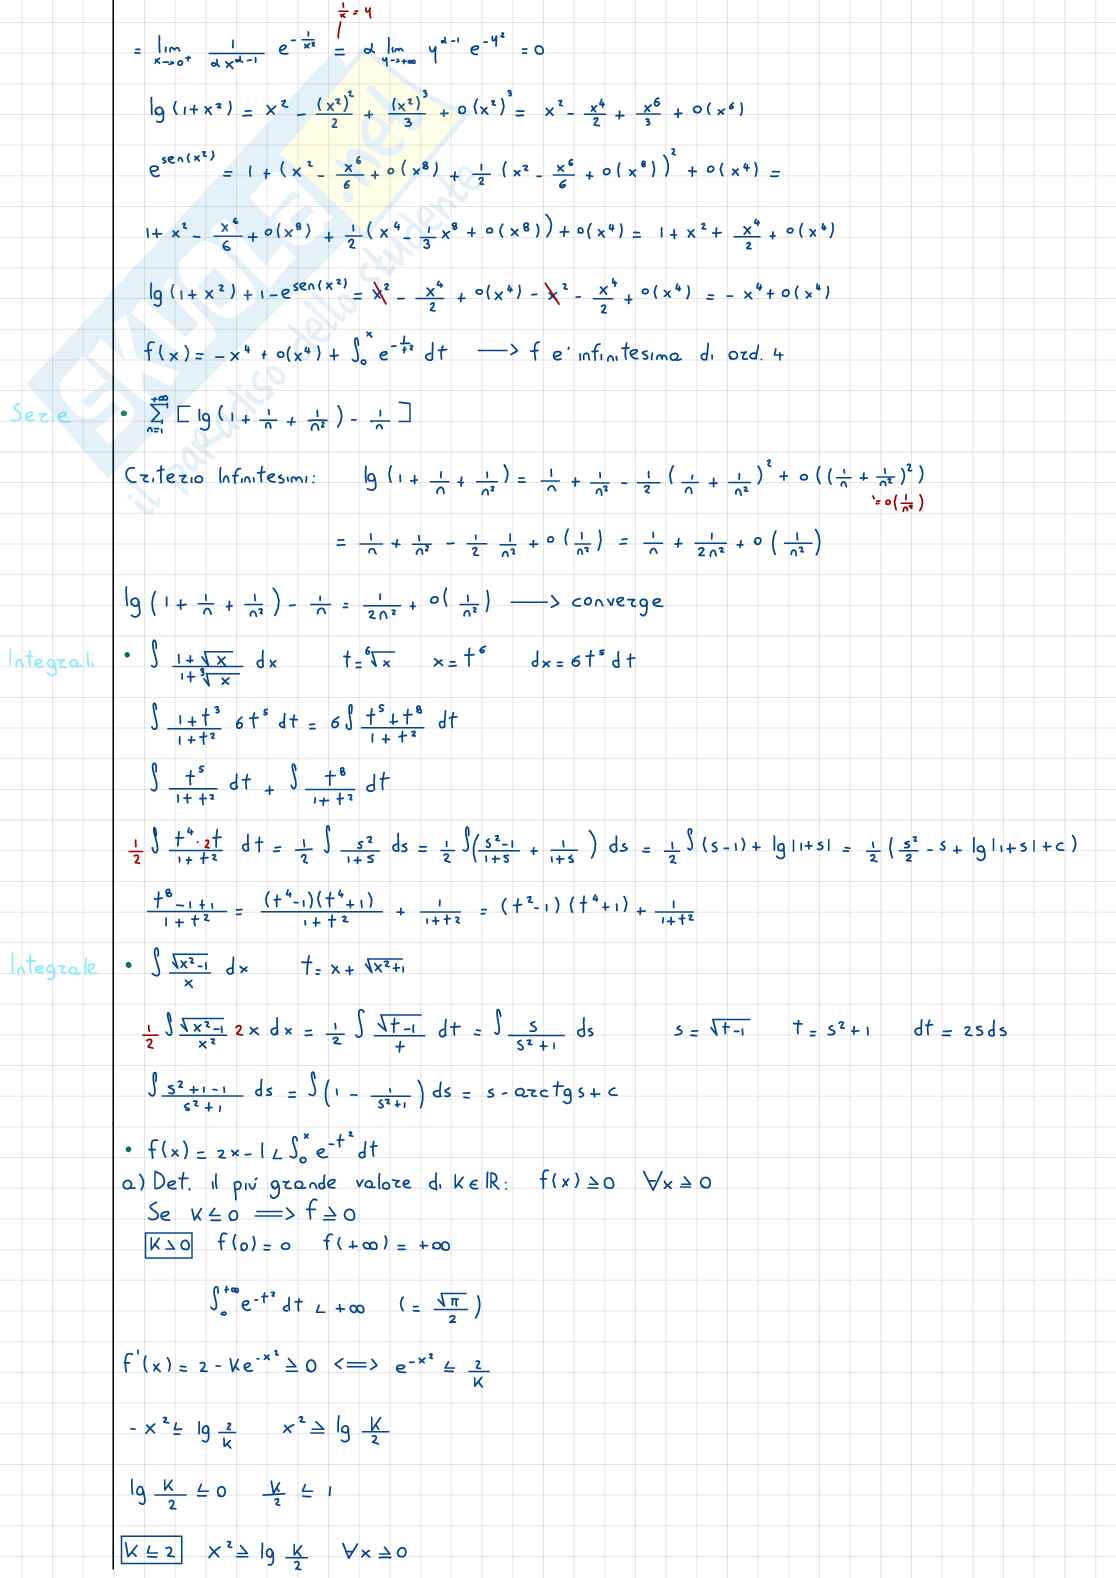 1/x = y
= lim x→0+ 1/(αx^(α-1)) e^(-1/x²) = α lim y→+∞ y^(α-1) e^(-y²) = 0
lg(1+x²) = x² - (x²)²/2 + (x²)³/3 + o(x²)³ = x² - x⁴/2 + x⁶/3 + o(x⁶)
e^(sen(x²)) = 1 + (x² - x⁶/6 + o(x⁸) + 1/2 (x² - x⁶/6 + o(x⁸))² + o(x⁴) =
1 + x² - x⁶/6 + o(x⁸) + 1/2 (x⁴ - 1/3 x⁸ + o(x⁸)) + o(x⁴) = 1 + x² + x⁴/2 + o(x⁴)
lg(1+x²) + 1 - e^(sen(x²)) = x² - x⁴/2 + o(x⁴) - x² - x⁴/2 + o(x⁴) = - x⁴ + o(x⁴)
f(x) = - x⁴ + o(x⁴) + ∫₀ˣ e^(-1/t²) dt → f e' infinitesima di ord. 4
Serie • Σ n=1 +∞ [ lg(1 + 1/n + 1/n²) - 1/n ]
Criterio Infinitesimi: lg(1 + 1/n + 1/n²) = 1/n + 1/n² - 1/2 (1/n + 1/n²)² + o((1/n + 1/n²)²)
= o(1/n²)
= 1/n + 1/n² - 1/2 1/n² + o(1/n²) = 1/n + 1/2n² + o(1/n²)
lg(1 + 1/n + 1/n²) - 1/n = 1/2n² + o(1/n²) → converge
Integrali • ∫ (1+√x)/(1+³√x) dx t = ⁶√x x = t⁶ dx = 6t⁵ dt
∫ (1+t³)/(1+t²) 6t⁵ dt = 6∫ (t⁵+t⁸)/(1+t²) dt
∫ t⁵/(1+t²) dt + ∫ t⁸/(1+t²) dt
1/2 ∫ (t⁴·2t)/(1+t²) dt = 1/2 ∫ s²/(1+s) ds = 1/2 ∫((s²-1)/(1+s) + 1/(1+s)) ds = 1/2 ∫(s-1) + lg|1+s| = 1/2 (s²/2 - s + lg|1+s| + c)
(t⁸-1+1)/(1+t²) = ((t⁴-1)(t⁴+1))/(1+t²) + 1/(1+t²) = (t²-1)(t⁴+1) + 1/(1+t²)
Integrale • ∫ √(x²-1)/x dx t = x + √(x²+1)
1/2 ∫ √(x²-1)/x² 2x dx = 1/2 ∫ √(t-1)/t dt = ∫ s/(s²+1) ds s = √(t-1) t = s²+1 dt = 2sds
∫ (s²+1-1)/(s²+1) ds = ∫(1 - 1/(s²+1)) ds = s - arctgs + c
• f(x) = 2x - k ∫₀ˣ e^(-t²) dt
a) Det. il più grande valore di K∈ℝ: f(x) ≥ 0 ∀x ≥ 0
Se K ≤ 0 ⟹ f ≥ 0
K > 0 f(0) = 0 f(+∞) = +∞
∫₀^(+∞) e^(-t²) dt < +∞ (= √π/2)
f'(x) = 2 - Ke^(-x²) ≥ 0 <=> e^(-x²) ≤ 2/K
- x² ≤ lg 2/K x² ≥ lg K/2
lg K/2 ≤ 0 K/2 ≤ 1
K ≤ 2 x² ≥ lg K/2 ∀x ≥ 0
SKUOLA.net
il paradiso dello studente